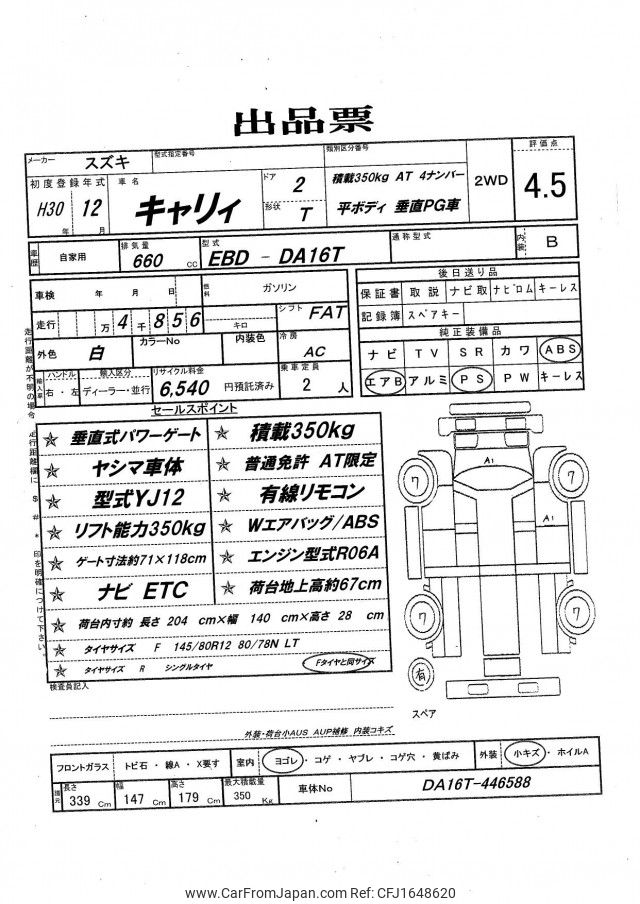 出品票
メーカー スズキ 型式指定番号 類別区分番号
初度登録年式 H30年 12月
車名 キャリィ
ドア 2
形状 T
積載350kg AT 4ナンバー
平ボディ 垂直PG車
2WD
評価点 4.5
車歴 自家用
排気量 660 cc
型式 EBD - DA16T
通称型式
内装 B
車検 年 月 日
燃料 ガソリン
走行 万 4 千 8 5 6 キロ
シフト FAT
外色 白
カラーNo
内装色
冷房 AC
輸入車 ハンドル 右・左
輸入区分 ディーラー・並行
リサイクル料金 6,540 円預託済み
乗車定員 2 人
後日送り品
保証書 取説 ナビ取 ナビロム キーレス
記録簿 スペアキー
純正装備品
ナビ TV SR カワ ABS
エアB アルミ PS PW キーレス
走行距離が不明の場合
走行距離欄に $ # * 印を明確につけて下さい。
セールスポイント
☆ 垂直式パワーゲート ☆ 積載350kg
☆ ヤシマ車体 ☆ 普通免許 AT限定
☆ 型式YJ12 ☆ 有線リモコン
☆ リフト能力350kg ☆ Wエアバッグ/ABS
☆ ゲート寸法約71×118cm ☆ エンジン型式R06A
☆ ナビ ETC ☆ 荷台地上高約67cm
☆ 荷台内寸約 長さ 204 cm×幅 140 cm×高さ 28 cm
☆ タイヤサイズ F 145/80R12 80/78N LT
☆ タイヤサイズ R シングルタイヤ Fタイヤと同サイズ
A1
7
7
A1
7
7
有
スペア
検査員記入
外装・荷台小AUS AUP補修 内装コキズ
フロントガラス トビ石・線A・X要す
室内 ヨゴレ・コゲ・ヤブレ・コゲ穴・黄ばみ
外装 小キズ・ホイルA
諸元 長さ 339 Cm 幅 147 Cm 高さ 179 Cm 最大積載量 350 Kg
車体No DA16T-446588
www.CarFromJapan.com Ref: CFJ1648620